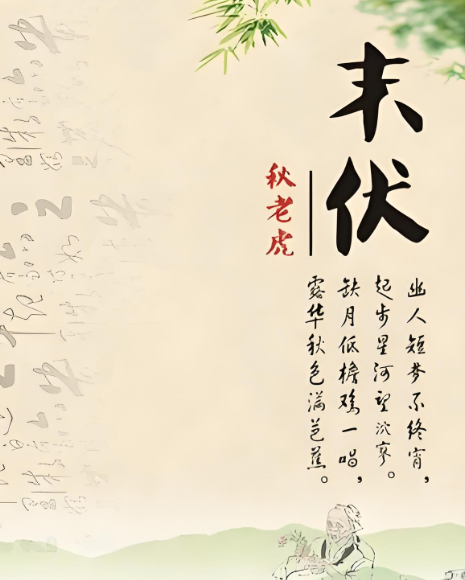 末伏
秋老虎
幽人短梦不终宵，
起步星河望沈寥。
缺月低檐鸡一唱，
露华秋色满芭蕉。